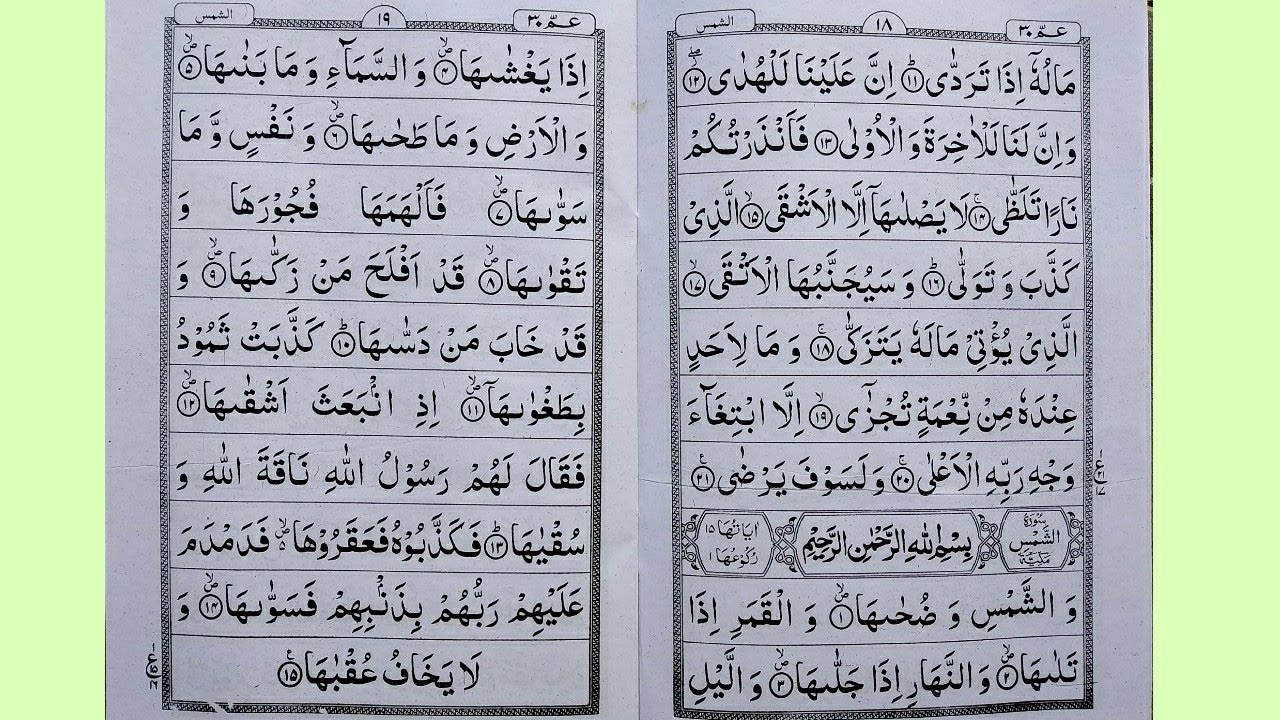 عـمّ ٣٠
١٨
الشمس
مَالُهٗۤ اِذَا تَرَدّٰى ۝١١ؕ اِنَّ عَلَيْنَا لَلْهُدٰى ۝١٢ۖ
وَاِنَّ لَنَا لَلْاٰخِرَةَ وَ الْاُوْلٰى ۝١٣ فَاَنْذَرْتُكُمْ
نَارًا تَلَظّٰى ۝١٤ۚ لَا يَصْلٰىهَاۤ اِلَّا الْاَشْقَى ۝١٥ۙ الَّذِىْ
كَذَّبَ وَ تَوَلّٰى ۝١٦ؕ وَ سَيُجَنَّبُهَا الْاَتْقَى ۝١٧ۙ
الَّذِىْ يُؤْتِىْ مَالَهٗ يَتَزَكّٰى ۝١٨ۚ وَ مَا لِاَحَدٍ
عِنْدَهٗ مِنْ نِّعْمَةٍ تُجْزٰٓى ۝١٩ۙ اِلَّا ابْتِغَآءَ
وَجْهِ رَبِّهِ الْاَعْلٰى ۝٢٠ۚ وَ لَسَوْفَ يَرْضٰى ۝٢١
سُوْرَةُ الشَّمْسِ مَكِّيَّةٌ
بِسْمِ اللّٰهِ الرَّحْمٰنِ الرَّحِيْمِ
اٰيَاتُهَا ١٥ رُكُوْعُهَا ١
وَ الشَّمْسِ وَ ضُحٰىهَا ۝١ۙ وَ الْقَمَرِ اِذَا
تَلٰىهَا ۝٢ۙ وَ النَّهَارِ اِذَا جَلّٰىهَا ۝٣ۙ وَ الَّيْلِ
عـمّ ٣٠
١٩
الشمس
اِذَا يَغْشٰىهَا ۝٤ۙ وَ السَّمَآءِ وَ مَا بَنٰىهَا ۝٥ۙ
وَ الْاَرْضِ وَ مَا طَحٰىهَا ۝٦ۙ وَ نَفْسٍ وَّ مَا
سَوّٰىهَا ۝٧ۙ فَاَلْهَمَهَا فُجُوْرَهَا وَ
تَقْوٰىهَا ۝٨ۙ قَدْ اَفْلَحَ مَنْ زَكّٰىهَا ۝٩ۙ وَ
قَدْ خَابَ مَنْ دَسّٰىهَا ۝١٠ؕ كَذَّبَتْ ثَمُوْدُ
بِطَغْوٰىهَاۤ ۝١١ۙ اِذِ انْۢبَعَثَ اَشْقٰىهَا ۝١٢ۙ
فَقَالَ لَهُمْ رَسُوْلُ اللّٰهِ نَاقَةَ اللّٰهِ وَ
سُقْيٰهَا ۝١٣ؕ فَكَذَّبُوْهُ فَعَقَرُوْهَا ۙ۬ فَدَمْدَمَ
عَلَيْهِمْ رَبُّهُمْ بِذَنْۢبِهِمْ فَسَوّٰىهَا ۝١٤ۙ وَ
لَا يَخَافُ عُقْبٰهَا ۝١٥